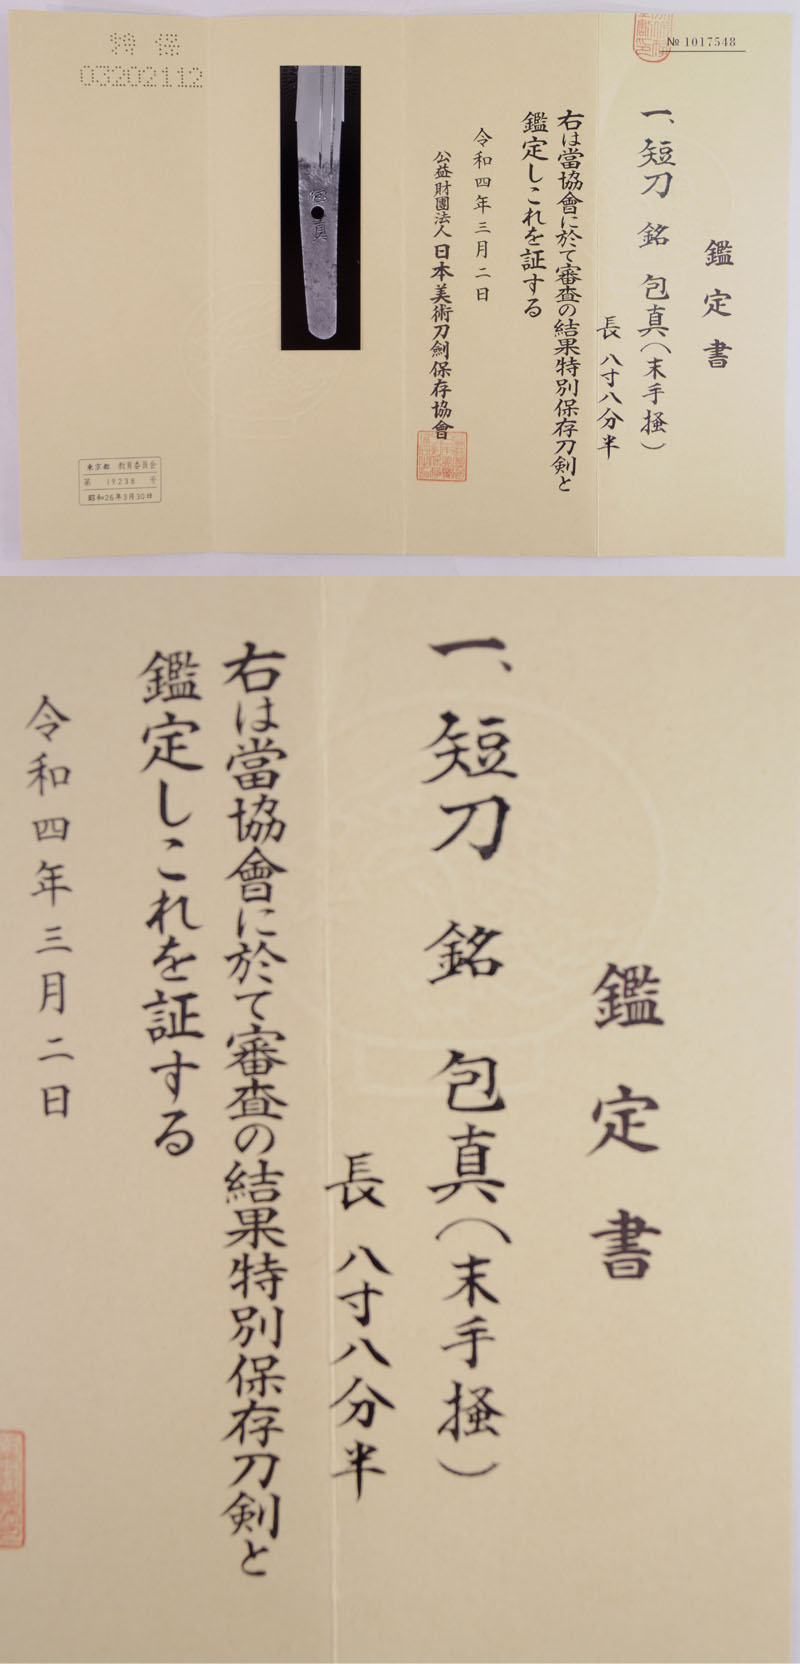 № 1017548
鑑定書
一、短刀 銘 包真(末手掻)
長 八寸八分半
右は當協會に於て審査の結果特別保存刀剣と
鑑定しこれを証する
令和四年三月二日
公益財團法人 日本美術刀劍保存協會
包真
特保
03202112
東京都 教育委員会
第 19238 号
昭和26年3月30日
鑑定書
一、短刀 銘 包真(末手掻)
長 八寸八分半
右は當協會に於て審査の結果特別保存刀剣と
鑑定しこれを証する
令和四年三月二日